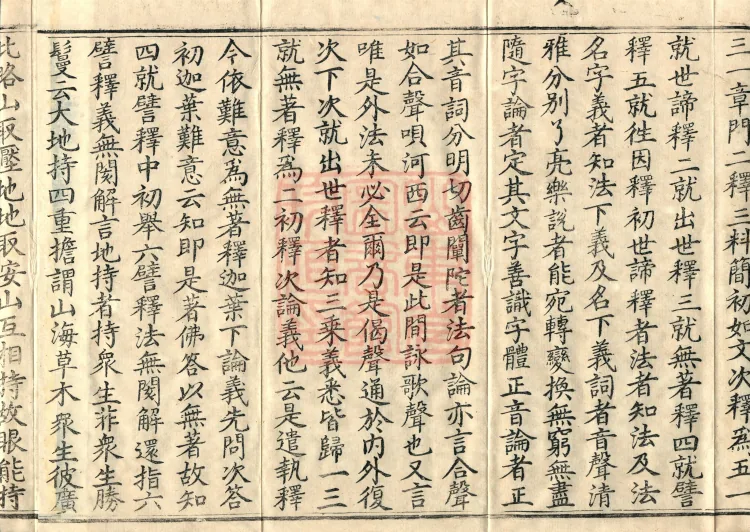 三章門二釋三料簡初如文次釋爲五一
就世諦釋二就出世釋三就無著釋四就譬
釋五就徃因釋初世諦釋者法者知法及法
名字義者知法下義及名下義詞者音聲清
雅分別了亮樂說者能宛轉變換無窮無盡
隨字論者定其文字善識字體正音論者正
其音詞分明切齒闡陀者法句論亦言合聲
如合聲唄河西云即是此間詠歌聲也又言
唯是外法未必全爾乃是偈聲通於內外復
次下次就出世釋者知三乘義悉皆歸一三
就無著釋爲二初釋次論義他云是遣執釋
今依難意爲無著釋迦葉下論義先問次答
初迦葉難意云知即是著佛答以無著故知
四就譬釋中初舉六譬釋法無閡解還指六
譬釋義無閡解言地持者持衆生非衆生勝
鬘云大地持四重擔謂山海草木衆生彼廣
此略山取壓地地取安山互相持故眼能持